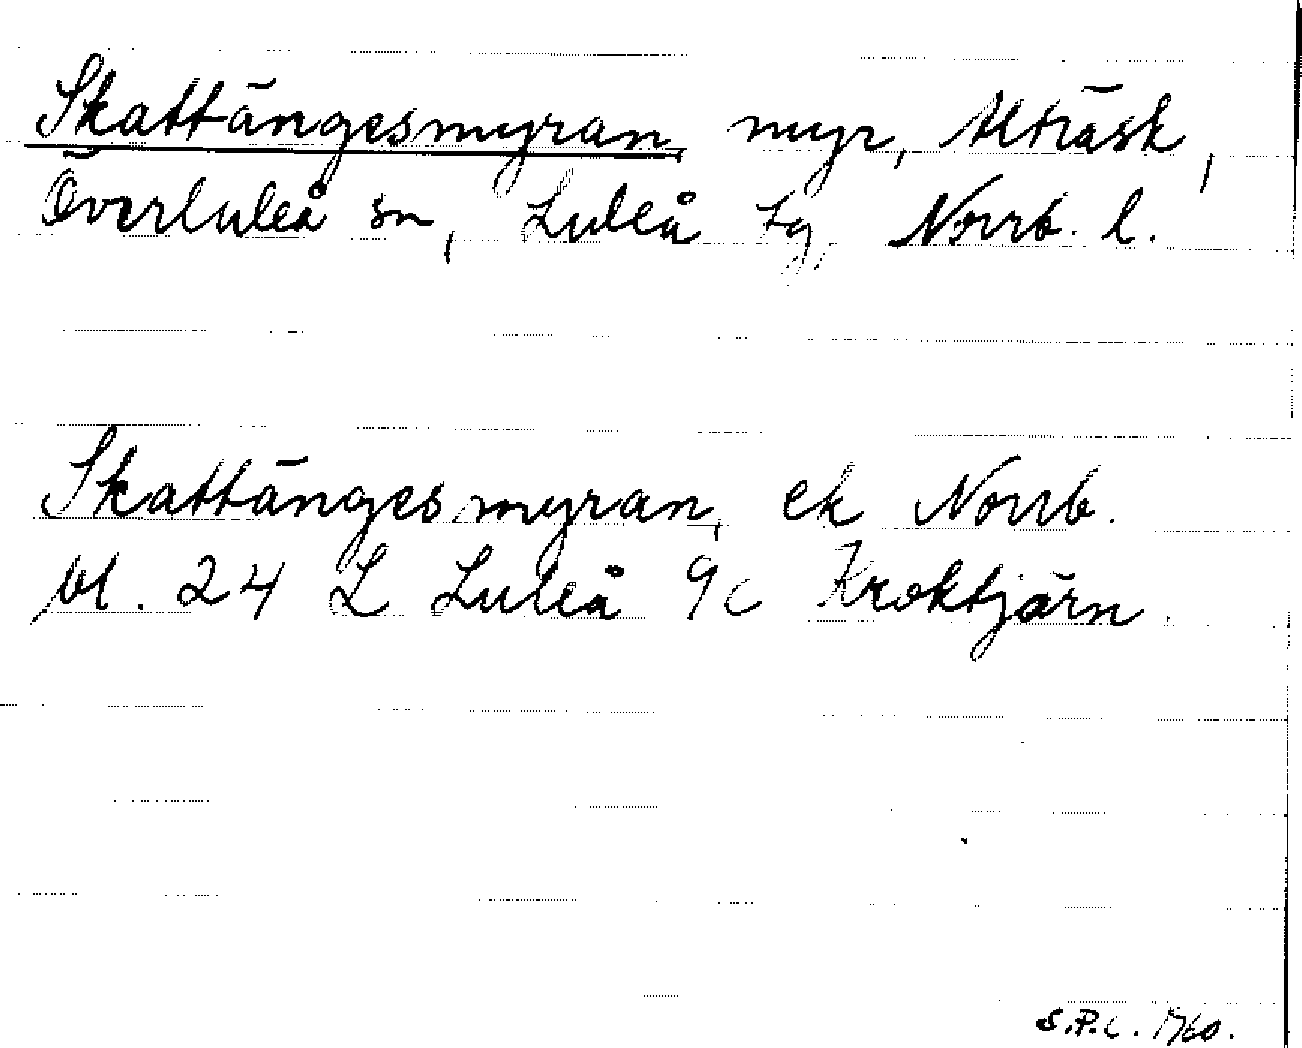 Skattängesmyran, myr, Alträsk,
Överluleå sn, Luleå tg, Norrb. l.
Skattängesmyran, ek Norrb.
bl. 24 L Luleå 9c Kroktjärn.
S.P.C. 1960.